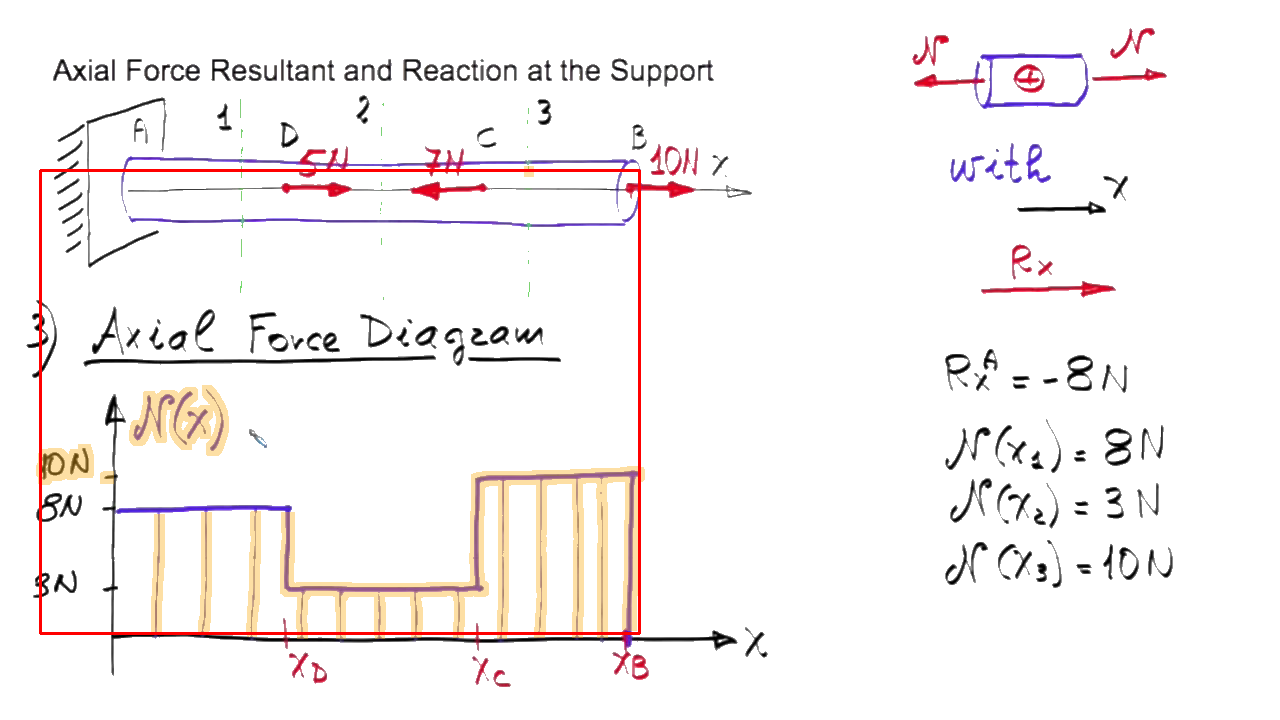 Axial Force Resultant and Reaction at the Support
1 2 3
A D C B
5N 7N 10N x
3) Axial Force Diagram
N(x)
10N
8N
3N
x
xD xC xB
N + N
with
x
Rx
RxA = -8N
N(x1) = 8N
N(x2) = 3N
N(x3) = 10N